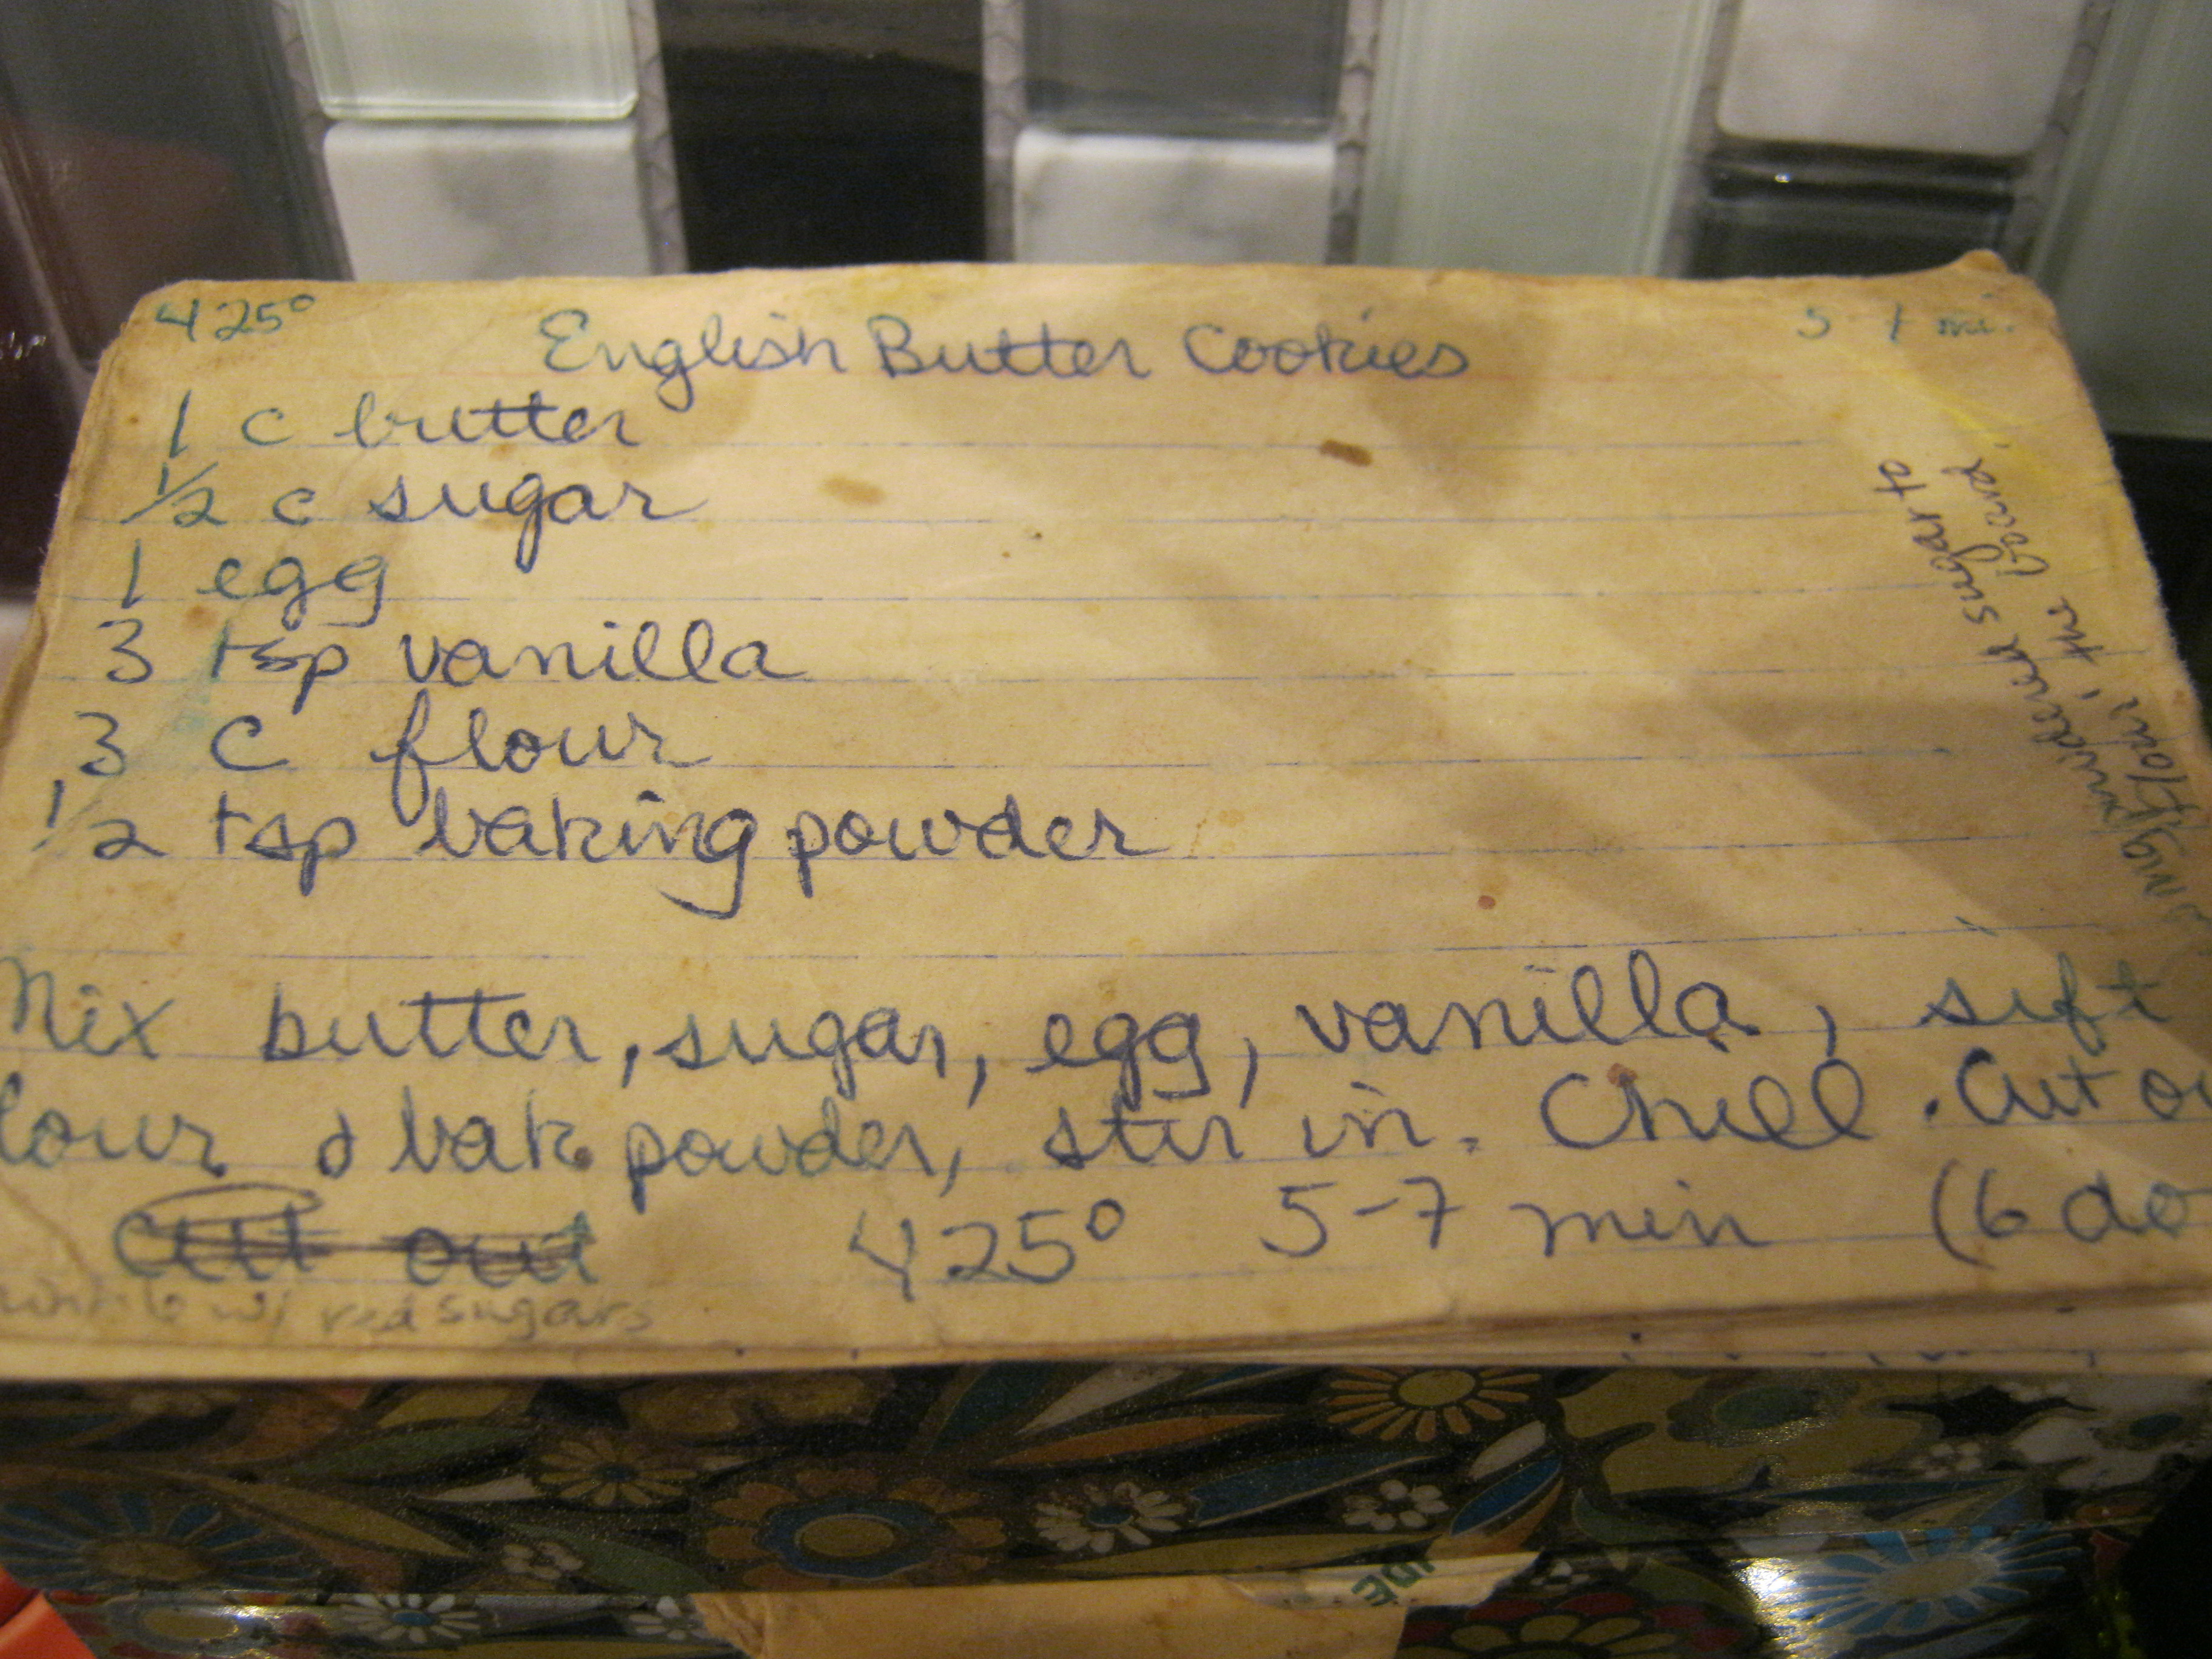 425° English Butter Cookies 5-7 mi.
1 c butter
1/2 c sugar
1 egg
3 tsp vanilla
3 c flour
1/2 tsp baking powder
Mix butter, sugar, egg, vanilla, sift
lour & bak powder, stir in. Chill. Cut ou
cut out 425° 5-7 min (6 do
w/ red sugars
powdered sugar to
the board